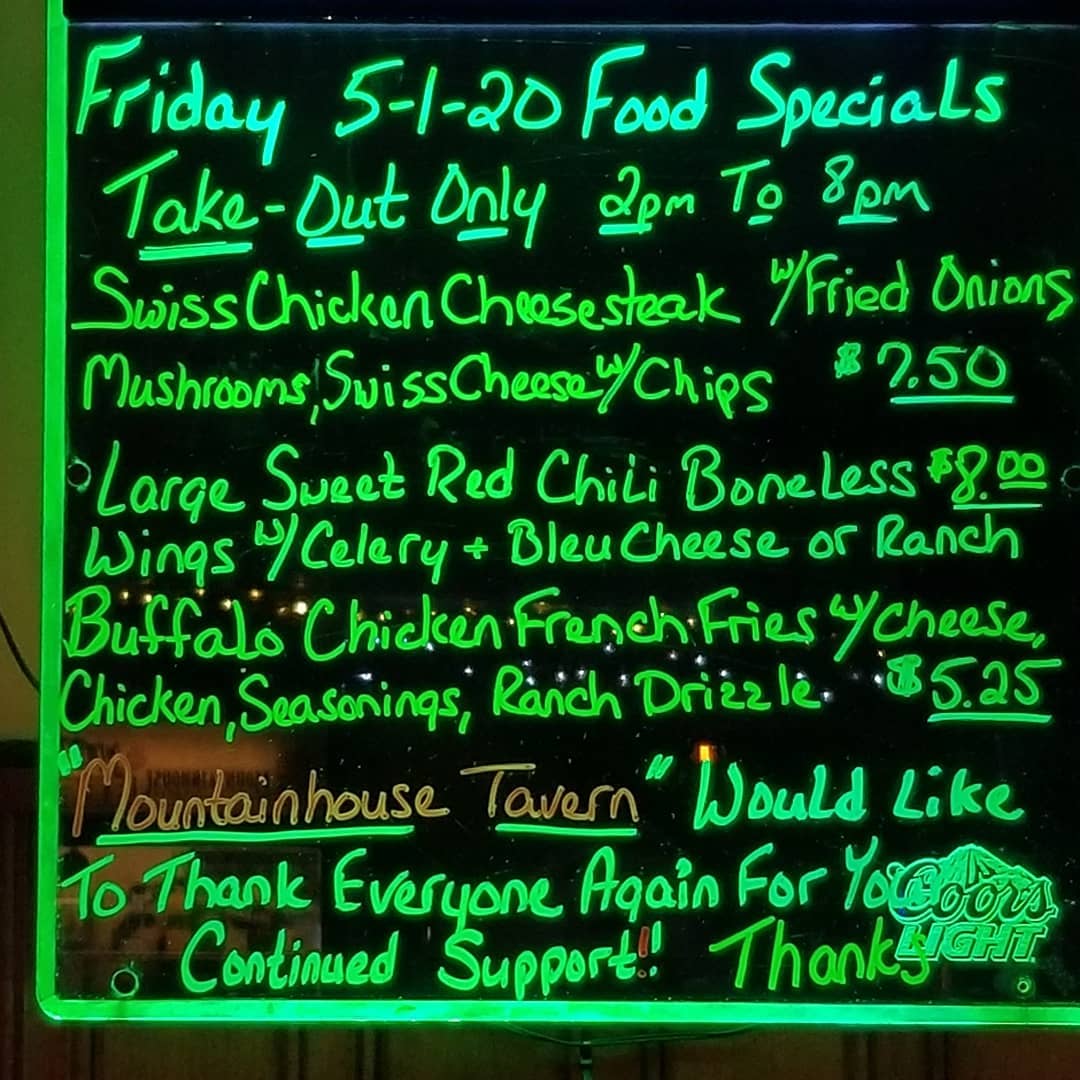 Friday 5-1-20 Food Specials
Take-Out Only 2pm To 8pm
Swiss Chicken Cheesesteak w/Fried Onions
Mushrooms, Swiss Cheese w/Chips $7.50
Large Sweet Red Chili Boneless $8.00
Wings w/Celery + Bleu Cheese or Ranch
Buffalo Chicken French Fries w/cheese,
Chicken, Seasonings, Ranch Drizzle $5.25
"Mountainhouse Tavern" Would Like
To Thank Everyone Again For Your
Continued Support!! Thanks
Coors
LIGHT